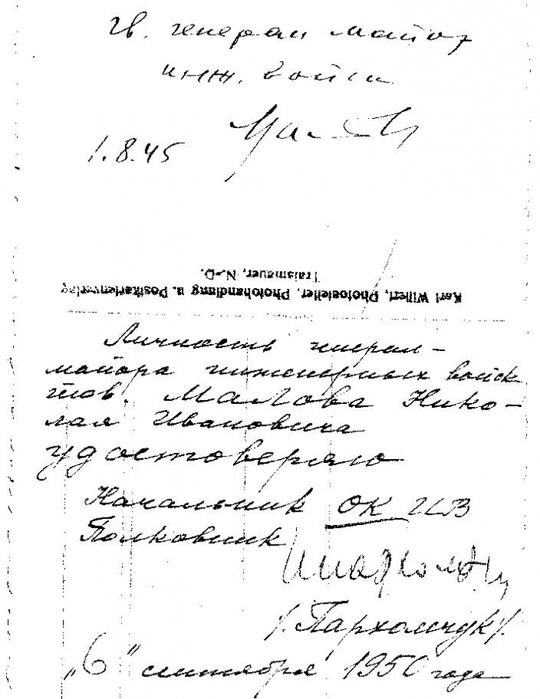 гв. генерал майор
инж. войск
1.8.45
Karl Willert, Photoatelier, Photohandlung u. Postkartenverlag
Traismauer, N.-D.
Личность генерал-
майора инженерных войск
тов. Малова Нико-
лая Ивановича
удостоверяю
Начальник ОК ИВ
Полковник
/.Пархомчук/.
„6" сентября 1950 года